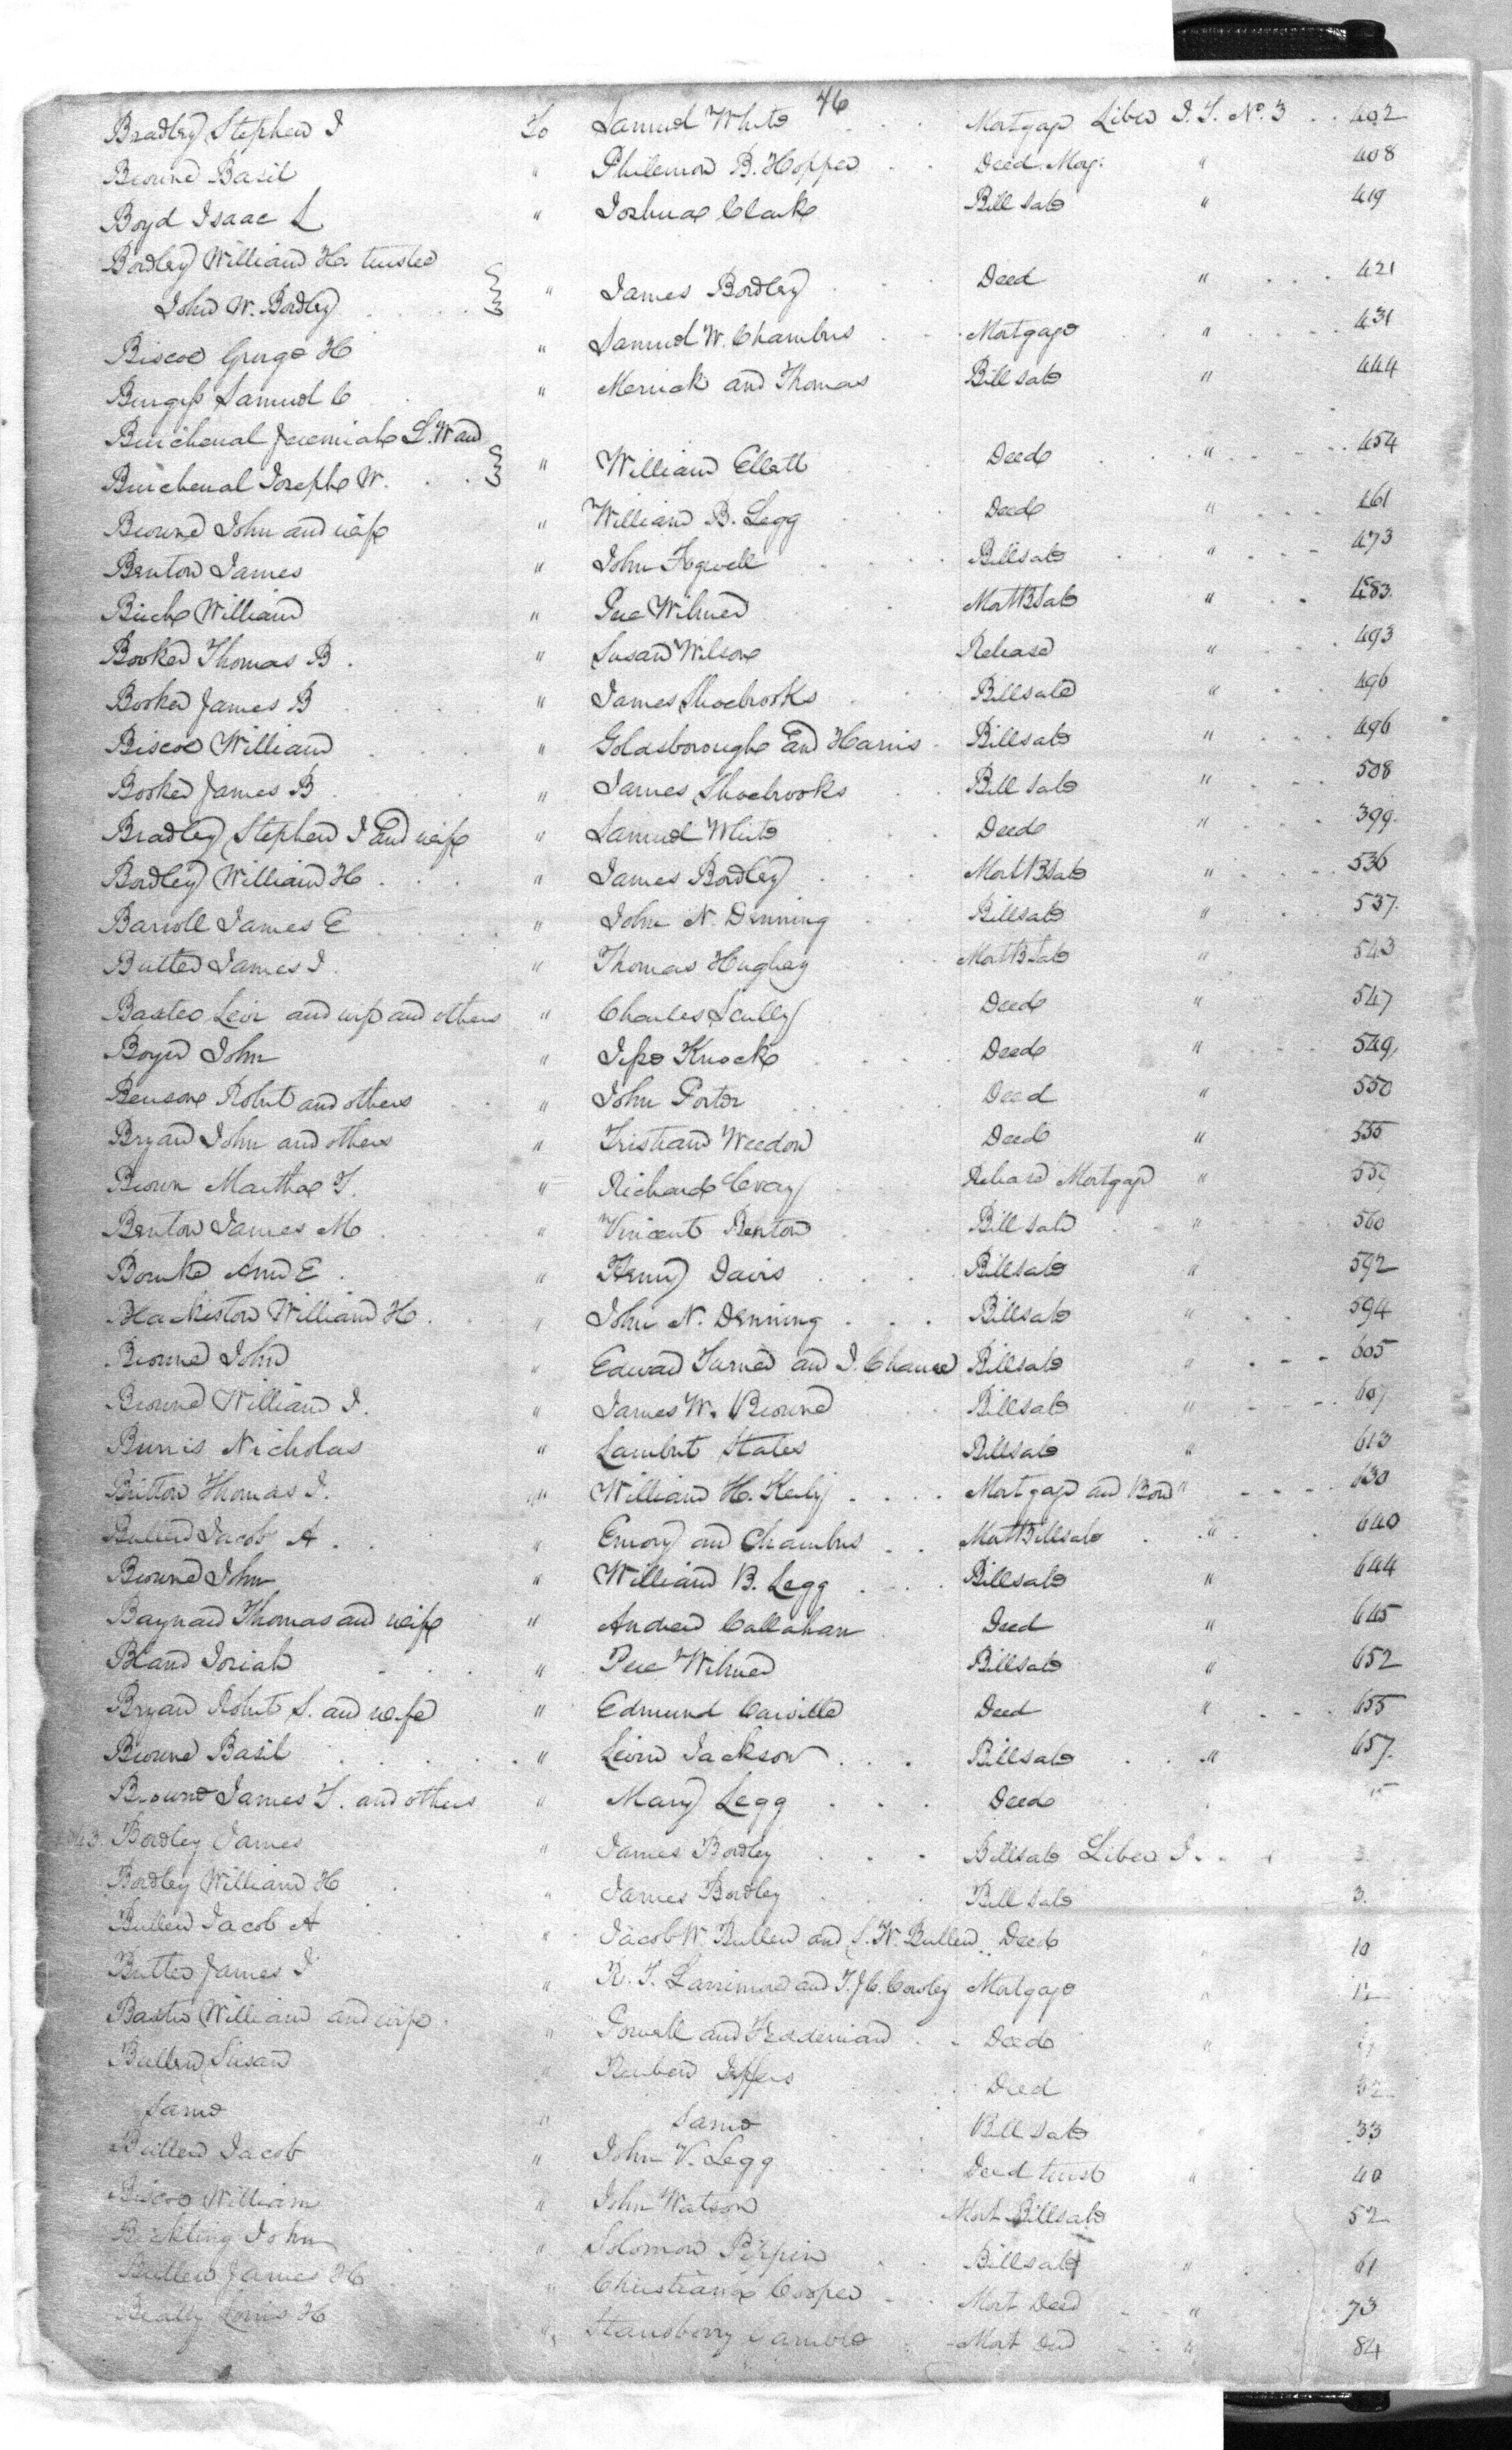 46
Bradley Stephen I To Samuel White . . . Mortgage Liber I. T. No. 3 . . 402
Browne Basil " Philemon B. Hopper . . Deed. Mog: " 408
Boyd Isaac L " Joshua Clark Bill Sale " 419
Bordley William H. trustee
John W. Bordley . . . . . } " James Bordley . . . Deed " . . . 421
Biscoe George H " Samuel W. Chambers . . Mortgage . . " . . . . 431
Burgess Samuel C " Merrick and Thomas Bill Sale " 444
Burchenal Jeremiah L. W and
Burchenal Joseph W. . . } " William Ellett . . Deed . . . " . . . . 454
Browne John and wife " William B. Legg . . . Deed " . . . 461
Benton James " John Fogwell . . . . Billsale . . " . . . 473
Birch William " Pere Wilmer . Mort B Sale " . . 483.
Booker Thomas B . " Susan Wilson Release " . . . 493
Booker James B . . . . " James Shoebrooks . . Billsale " . . . 496
Biscoe William . . . " Goldsborough and Harris . Billsale " . . . 496
Booker James B . . . . " James Shoebrooks . . Bill Sale " . . . 508
Bradley Stephen I and wife " Samuel White . . . Deed " . . . 399.
Bordley William H . . . " James Bordley . . . Mort B Sale " . . . . 536
Barroll James E . . . . " John N. Denning . . Billsale " . 537.
Butler James I . " Thomas Hughey . . . Mort B Sale " 543
Baxter Levi and wife and others " Charles Scully . . . Deed " 547
Boyer John " Jesse Knock . . . . Deed " . . . 549
Benson Robert and others . . " John Porter . . . . Deed " 550
Bryan John and others . " Tristram Weedon Deed " 555
Brown Martha T. " Richard C Gray . . Release Mortgage "
Benton James M . " Vincent Benton . . Bill Sale . . " 560
Bourke Ann E . " Henry Davis . . . . Billsale " 592
Blackiston William H . . " John N. Denning . . . Billsale " . . 594
Browne John " Edward Turner and I. Chance Billsale " . . . 605
Browne William I. " James W. Browne . . Billsale " . . . . 607
Burris Nicholas " Lambert States Billsale " 613
Britton Thomas I. " William H. . . . . Mortgage and Bond " . . . . 630
Bullen Jacob A . . . " Emory and Chambers . . Mort Billsale . " . . 640
Browne John " William B. Legg . . . . Billsale " 644
Baynard Thomas and wife " Andrew Callahan . Deed " 645
Bland Josiah . . . " Pere Wilmer Billsale " 652
Bryan Robert S. and wife " Edmund Carville Deed " . . . 655
Browne Basil . . . . . " Levin Jackson . . . Billsale . . . " 657.
Browne James T. and others " Mary Legg . . . Deed
Bordley James " James Bordley . . . Billsale Liber I.
Bordley William H . " James Bordley . . . Bill Sale 3.
Bullen Jacob A . . " Jacob W. Bullen and S. W. Bullen . . Deed " 10
Butler James I " R. T. Larrimore and T. J C. Cowley Mortgage " 12
Baxter William and wife . " Powell and Feddeman . . Deed "
Bullen Susan " Reuben Jeffers . . . Deed 32
Same " Same . . . Bill Sale 33
Bullen Jacob " John V. Legg . . . Deed trust " 40
Biscoe William " John Watson Mort Billsale 52
John " Solomon Pippin . . Billsale " . 61
Butler James H " Christiana Cooper . . Mort Deed . . " . . 73
Beatty H " Stansberry . Mort Deed . . " . . 84